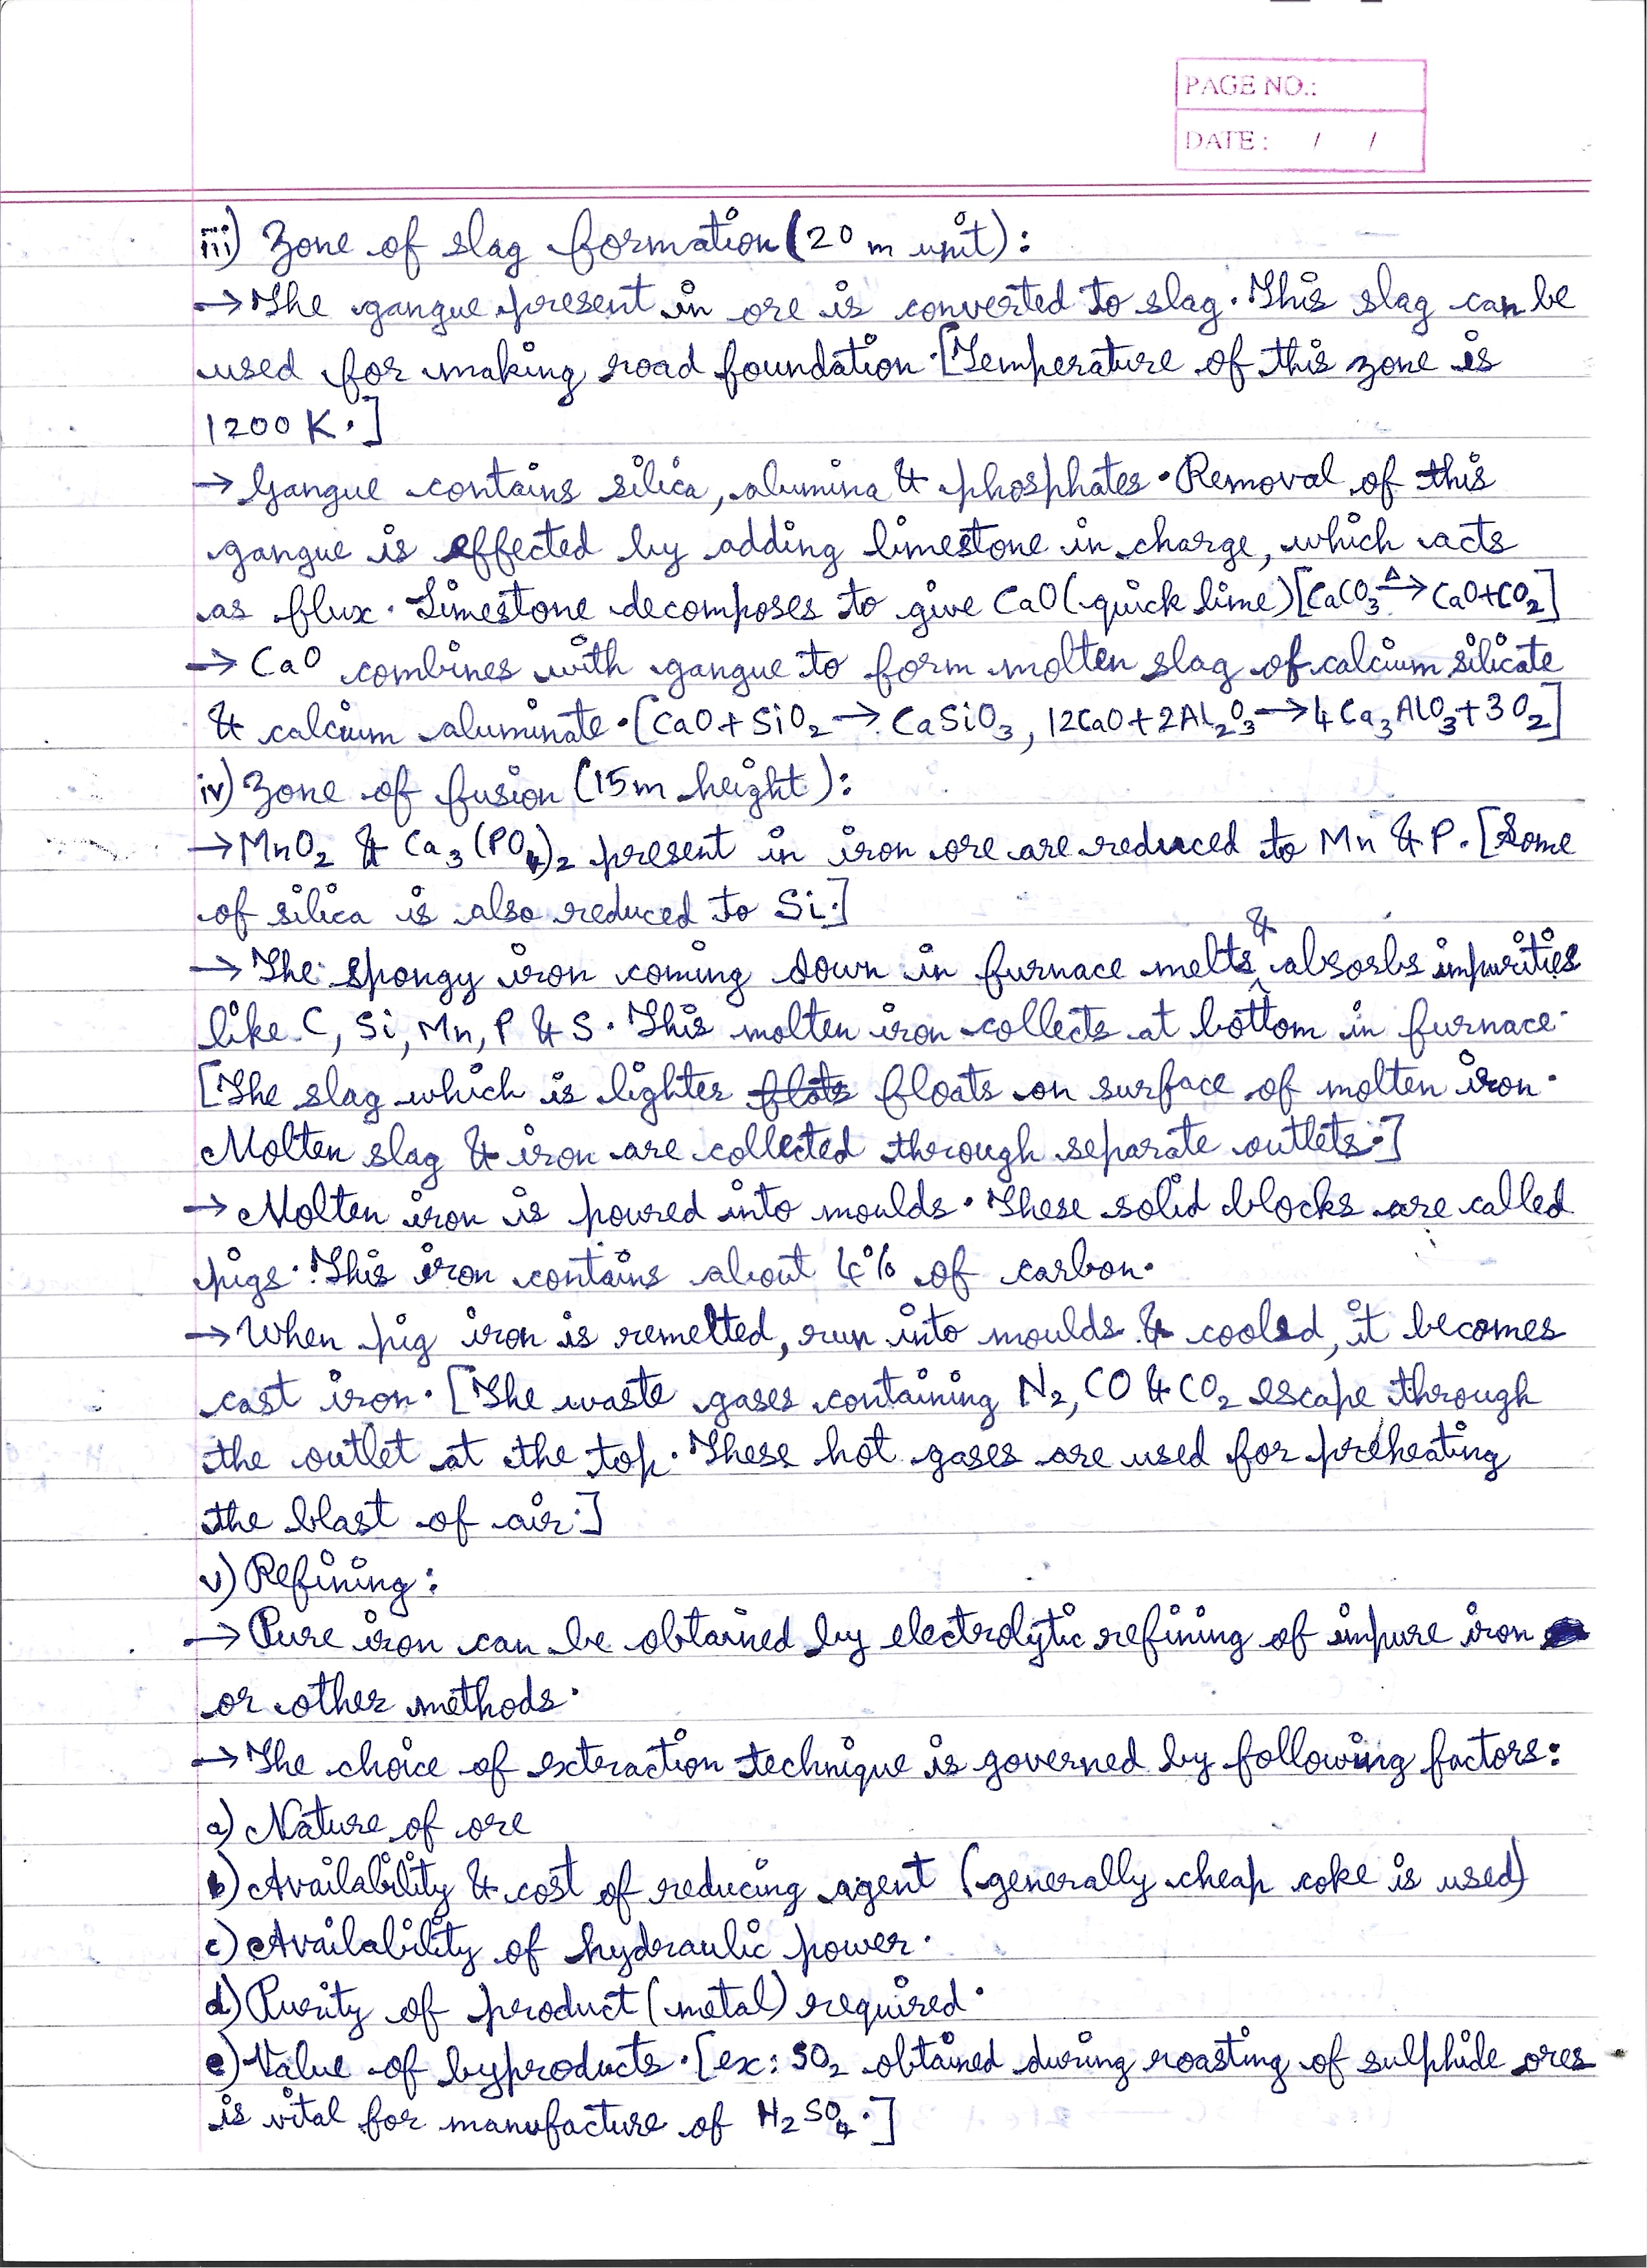 PAGE NO.:
DATE: / /
iii) Zone of slag formation (20 m unit):
→ The gangue present in ore is converted to slag. This slag can be
used for making road foundation. [Temperature of this zone is
1200 K.]
→ Gangue contains silica, alumina & phosphates. Removal of this
gangue is effected by adding limestone in charge, which acts
as flux. Limestone decomposes to give CaO (quick lime) [CaCO₃ –Δ→ CaO+CO₂]
→ CaO combines with gangue to form molten slag of calcium silicate
& calcium aluminate. [CaO + SiO₂ → CaSiO₃, 12CaO + 2Al₂O₃ → 4Ca₃AlO₃ + 3O₂]
iv) Zone of fusion (15m height):
→ MnO₂ & Ca₃(PO₄)₂ present in iron ore are reduced to Mn & P. [Some
of silica is also reduced to Si.]
→ The spongy iron coming down in furnace melts & absorbs impurities
like C, Si, Mn, P & S. This molten iron collects at bottom in furnace.
[The slag which is lighter floats on surface of molten iron.
Molten slag & iron are collected through separate outlets.]
→ Molten iron is poured into moulds. These solid blocks are called
pigs. This iron contains about 4% of carbon.
→ When pig iron is remelted, run into moulds & cooled, it becomes
cast iron. [The waste gases containing N₂, CO & CO₂ escape through
the outlet at the top. These hot gases are used for preheating
the blast of air.]
v) Refining:
→ Pure iron can be obtained by electrolytic refining of impure iron
or other methods.
→ The choice of exteraction technique is governed by following factors:
a) Nature of ore
b) Availability & cost of reducing agent (generally cheap coke is used)
c) Availability of hydraulic power.
d) Purity of product (metal) required.
e) Value of byproducts. [ex: SO₂ obtained during roasting of sulphide ores
is vital for manufacture of H₂SO₄.]